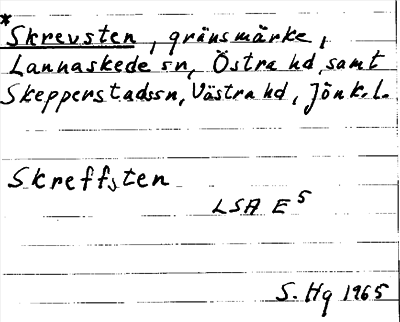 *Skrevsten, gränsmärke,
Lannaskede sn, Östra hd samt
Skepperstadssn, Västra hd, Jönk.l.
Skreffsten
LSA E 5
S. Hq 1965